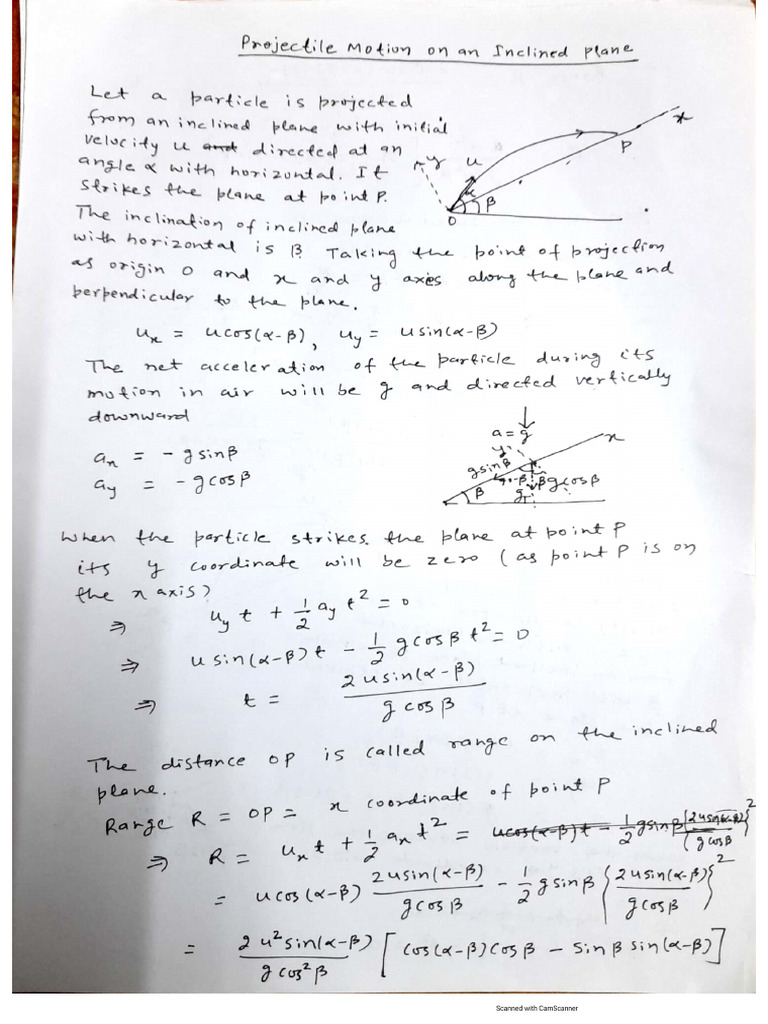 Projectile Motion on an Inclined plane
Let a particle is projected
from an inclined plane with initial
velocity u and directed at an
angle α with horizontal. It
strikes the plane at point P.
The inclination of inclined plane
with horizontal is β. Taking the point of projection
as origin O and x and y axes along the plane and
perpendicular to the plane.
x
P
y
u
α
β
O
ux = ucos(α-β), uy = usin(α-β)
The net acceleration of the particle during its
motion in air will be g and directed vertically
downward
ax = - gsinβ
ay = - gcosβ
a = g
x
y
gsinβ
90-β
β
gcosβ
β
g
When the particle strikes the plane at point P
its y coordinate will be zero (as point P is on
the x axis)
⇒ uy t + 1/2 ay t² = 0
⇒ usin(α-β)t - 1/2 gcosβ t² = 0
⇒ t = 2usin(α-β) / gcosβ
The distance OP is called range on the inclined
plane.
Range R = OP = x coordinate of point P
⇒ R = ux t + 1/2 ax t² = ucos(α-β)t - 1/2 gsinβ {2usin(α-β) / gcosβ}²
= ucos(α-β) 2usin(α-β) / gcosβ - 1/2 gsinβ {2usin(α-β) / gcosβ}²
= 2u²sin(α-β) / gcos²β [cos(α-β)cosβ - sinβ sin(α-β)]
Scanned with CamScanner